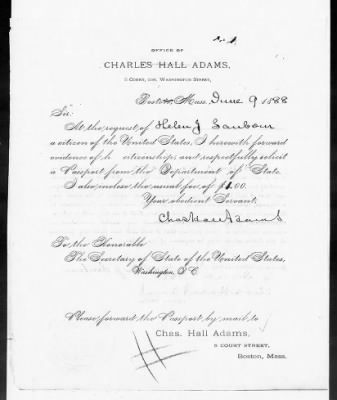 OFFICE OF
CHARLES HALL ADAMS,
5 COURT, COR. WASHINGTON STREET,
Boston, Mass. June 9 1888
Sir:
At the request of Helen J Sanborn
a citizen of the United States, I herewith forward
evidence of h citizenship, and respectfully solicit
a Passport from the Department of State.
I also inclose the usual fee of $1.00.
Your obedient Servant,
Chas Hall Adams
To the Honorable
The Secretary of State of the United States,
Washington, D.C.
Please forward the Passport by mail to
Chas. Hall Adams,
5 COURT STREET,
Boston, Mass.